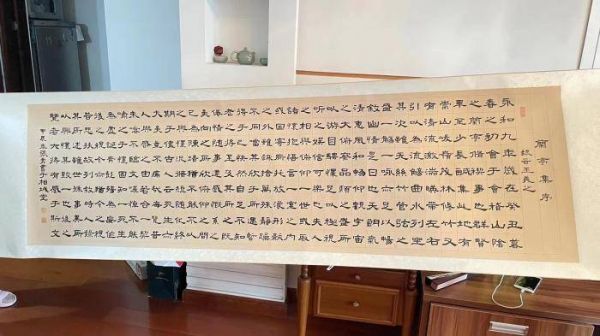 蘭亭集序
永和九年歲在癸丑暮
春之初會于會稽山陰
之蘭亭修禊事也群賢
畢至少長咸集此地有
崇山峻嶺茂林修竹又
有清流激湍映帶左右
引以為流觴曲水列坐
其次雖無絲竹管弦之
盛一觴一詠亦足以暢
敘幽情是日也天朗氣
清惠風和暢仰觀宇宙
之大俯察品類之盛所
以遊目騁懷足以極視
聽之娛信可樂也夫人
之相與俯仰一世或取
諸懷抱悟言一室之內
或因寄所託放浪形骸
之外雖趣舍萬殊靜躁
不同當其欣於所遇暫
得於己快然自足不知
老之將至及其所之既
倦情隨事遷感慨係之
矣向之所欣俯仰之間
已為陳跡猶不能不以
之興懷況修短隨化終
期於盡古人云死生亦
大矣豈不痛哉每覽昔
人興感之由若合一契
未嘗不臨文嗟悼不能
喻之於懷固知一死生
為虛誕齊彭殤為妄作
後之視今亦猶今之視
昔悲夫故列敘時人錄
其所述雖世殊事異所
以興懷其致一也後之
覽者亦將有感於斯文